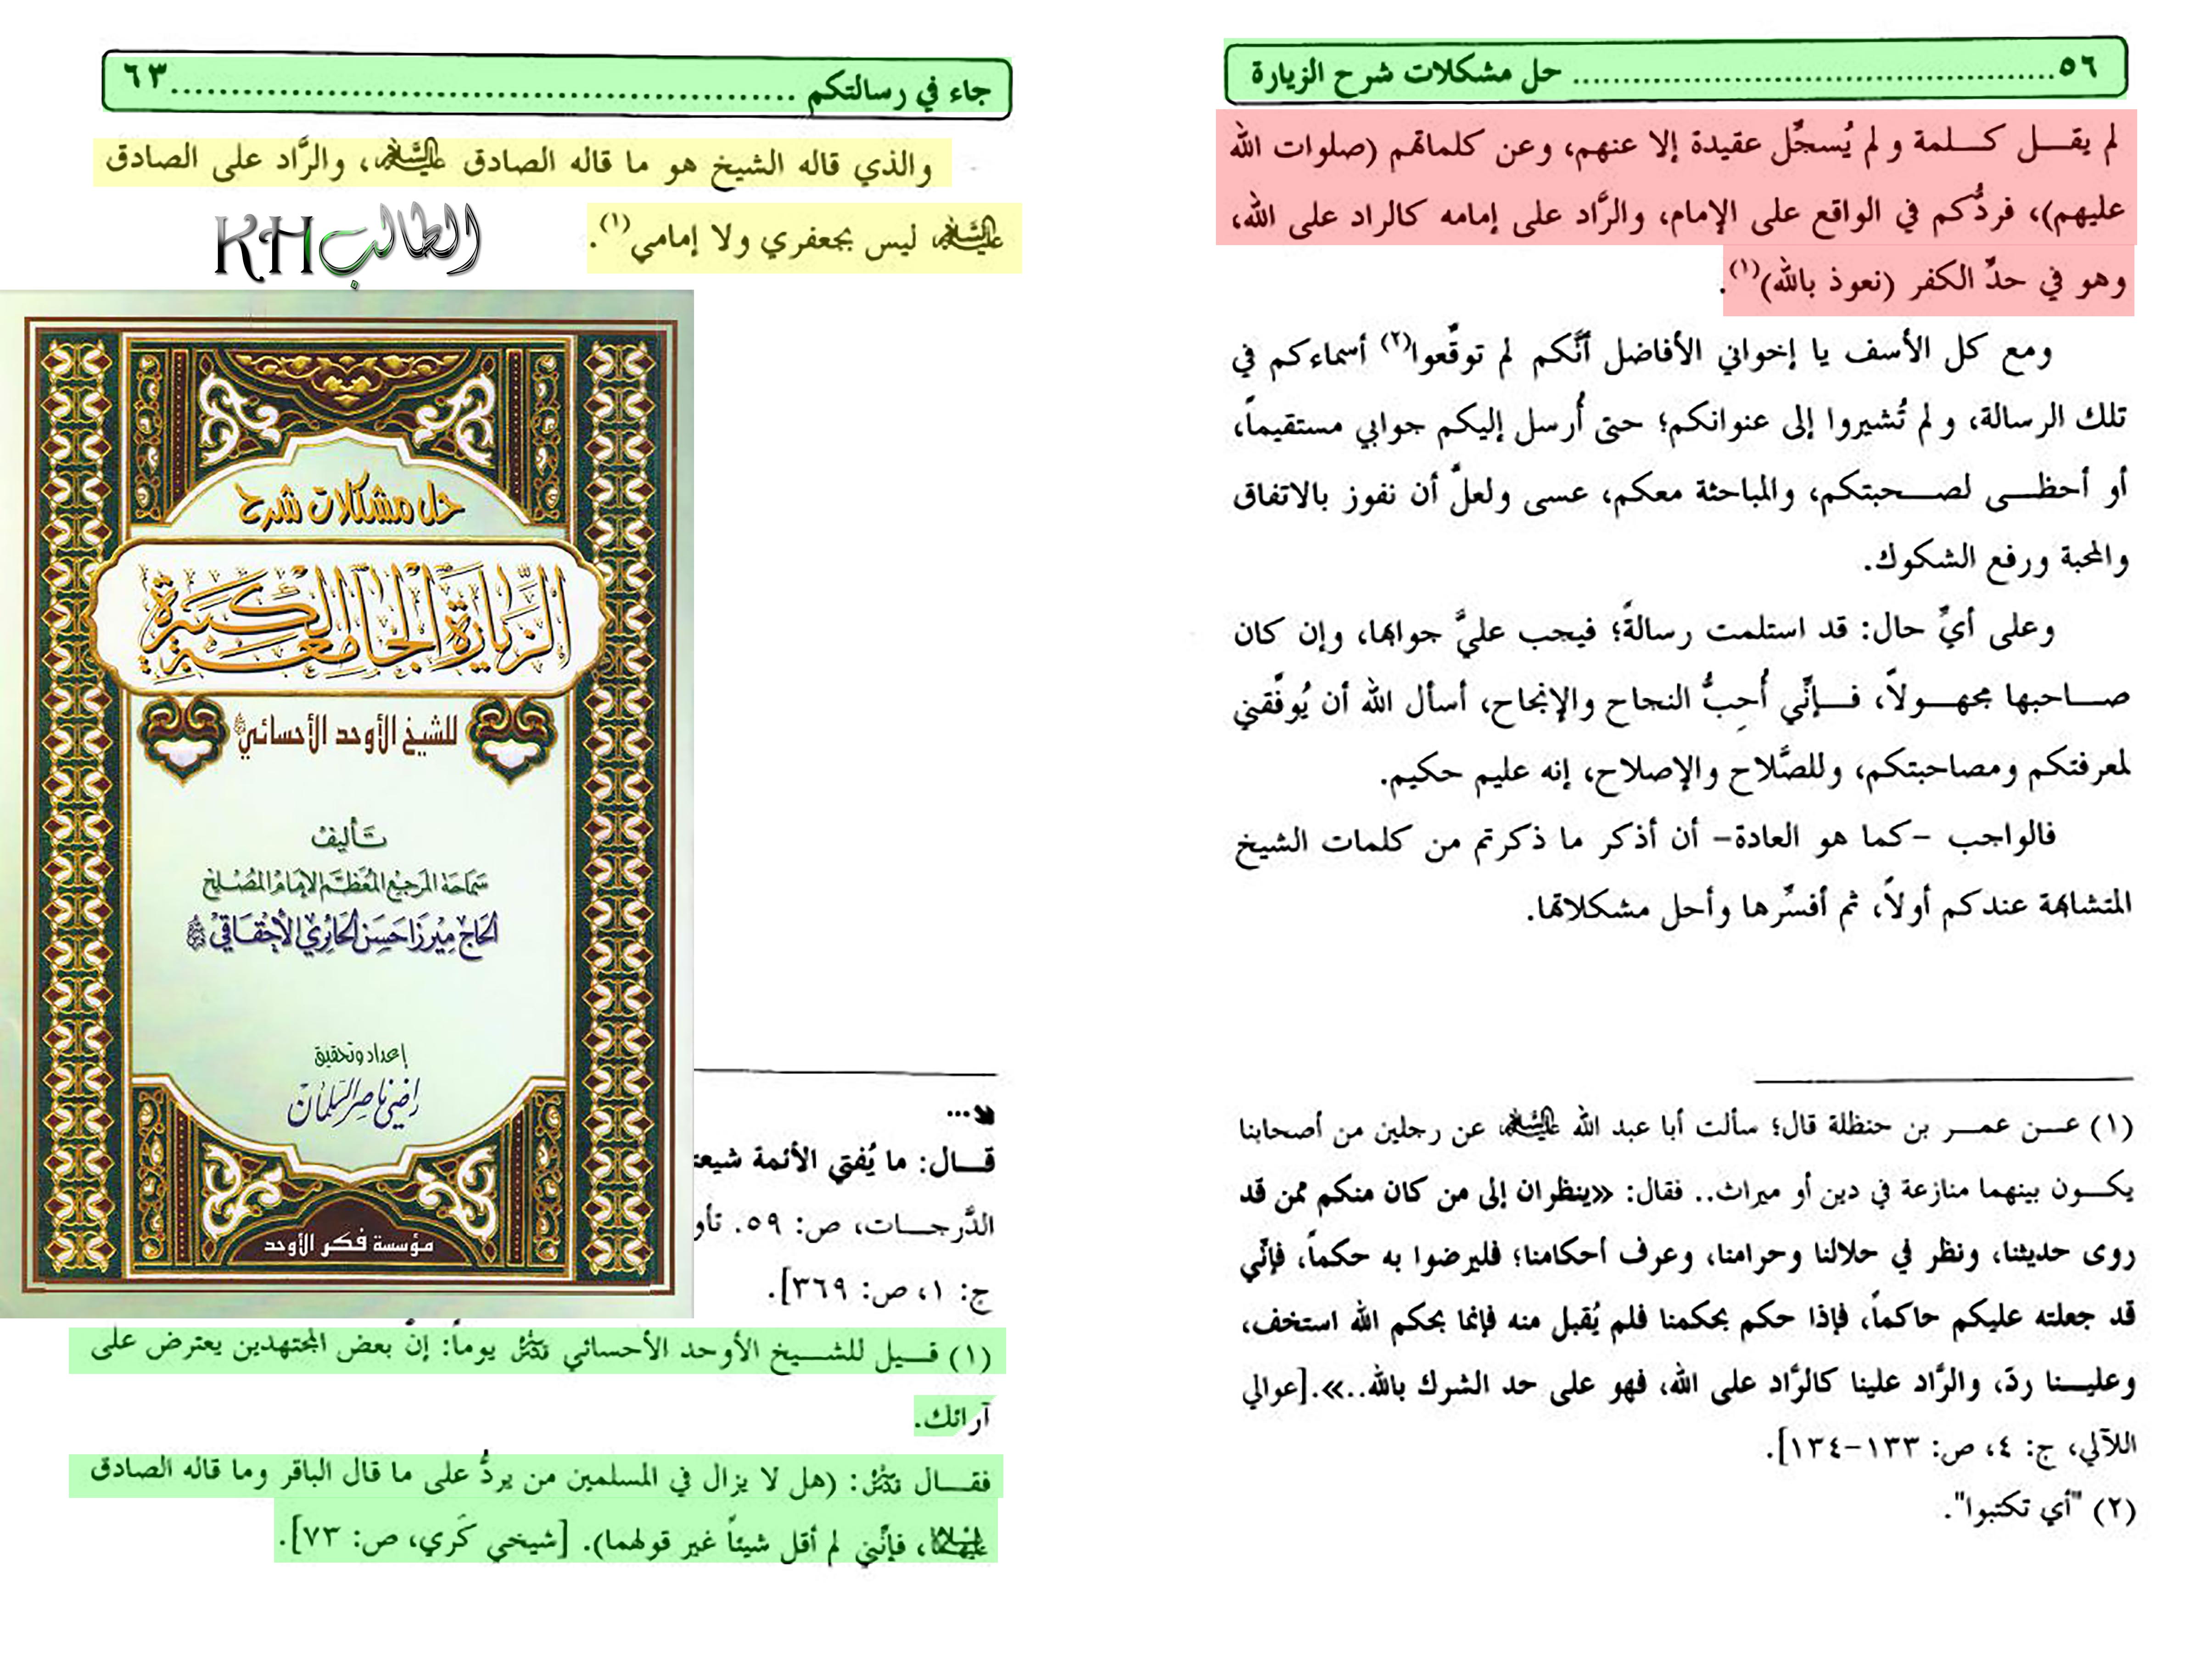 ٥٦ ........ حل مشكلات شرح الزيارة
لم يقــل كــلمة و لم يُسجِّل عقيدة إلا عنهم، وعن كلماتهم (صلوات الله
عليهم)، فردُّكم في الواقع على الإمام، والرَّاد على إمامه كالراد على الله،
وهو في حدِّ الكفر (نعوذ بالله)(١).
ومع كل الأسف يا إخواني الأفاضل أنَّكم لم توقِّعوا(٢) أسماءكم في
تلك الرسالة، و لم تُشيروا إلى عنوانكم؛ حتى أُرسل إليكم جوابي مستقيماً،
أو أحظــى لصــحبتكم، والمباحثة معكم، عسى ولعلَّ أن نفوز بالاتفاق
والمحبة ورفع الشكوك.
وعلى أيِّ حال: قد استلمت رسالةً؛ فيجب عليَّ جوابها، وإن كان
صــاحبها مجهــولاً، فــإنِّي أُحِبُّ النجاح والإنجاح، أسأل الله أن يُوفِّقني
لمعرفتكم ومصاحبتكم، وللصَّلاح والإصلاح، إنه عليم حكيم.
فالواجب –كما هو العادة– أن أذكر ما ذكرتم من كلمات الشيخ
المتشابهة عندكم أولاً، ثم أفسِّرها وأحل مشكلاتها.
(١) عــن عمــر بن حنظلة قال؛ سألت أبا عبد الله عليه السلام عن رجلين من أصحابنا
يكــون بينهما منازعة في دين أو ميراث.. فقال: «ينظران إلى من كان منكم ممن قد
روى حديثنا، ونظر في حلالنا وحرامنا، وعرف أحكامنا؛ فليرضوا به حكماً، فإنّي
قد جعلته عليكم حاكماً، فإذا حكم بحكمنا فلم يُقبل منه فإنما بحكم الله استخف،
وعليــنا ردّ، والرَّاد علينا كالرَّاد على الله، فهو على حد الشرك بالله..».[عوالي
اللآلي، ج: ٤، ص: ١٣٣-١٣٤].
(٢) "أي تكتبوا".
جاء في رسالتكم ........ ٦٣
والذي قاله الشيخ هو ما قاله الصادق عليه السلام، والرَّاد على الصادق
عليه السلام ليس بجعفري ولا إمامي(١).
الطالب KH
حل مشكلات شرح
الزيارة الجامعة الكبيرة
للشيخ الأوحد الأحسائي
تأليف
سماحة المرجع المعظم الإمام المصلح
الحاج ميرزا حسن الحائري الإحقاقي
إعداد وتحقيق
راضي ناصر السلمان
مؤسسة فكر الأوحد
...
قــال: ما يُفتي الأئمة
الدَّرجــات، ص: ٥٩.
ج: ١، ص: ٣٦٩].
(١) قــيل للشــيخ الأوحد الأحسائي قدس سره يوماً: إنّ بعض المجتهدين يعترض على
آرائك.
فقــال قدس سره: (هل لا يزال في المسلمين من يردُّ على ما قال الباقر وما قاله الصادق
عليهما السلام، فإنّني لم أقل شيئاً غير قولهما). [شيخي گري، ص: ٧٣].